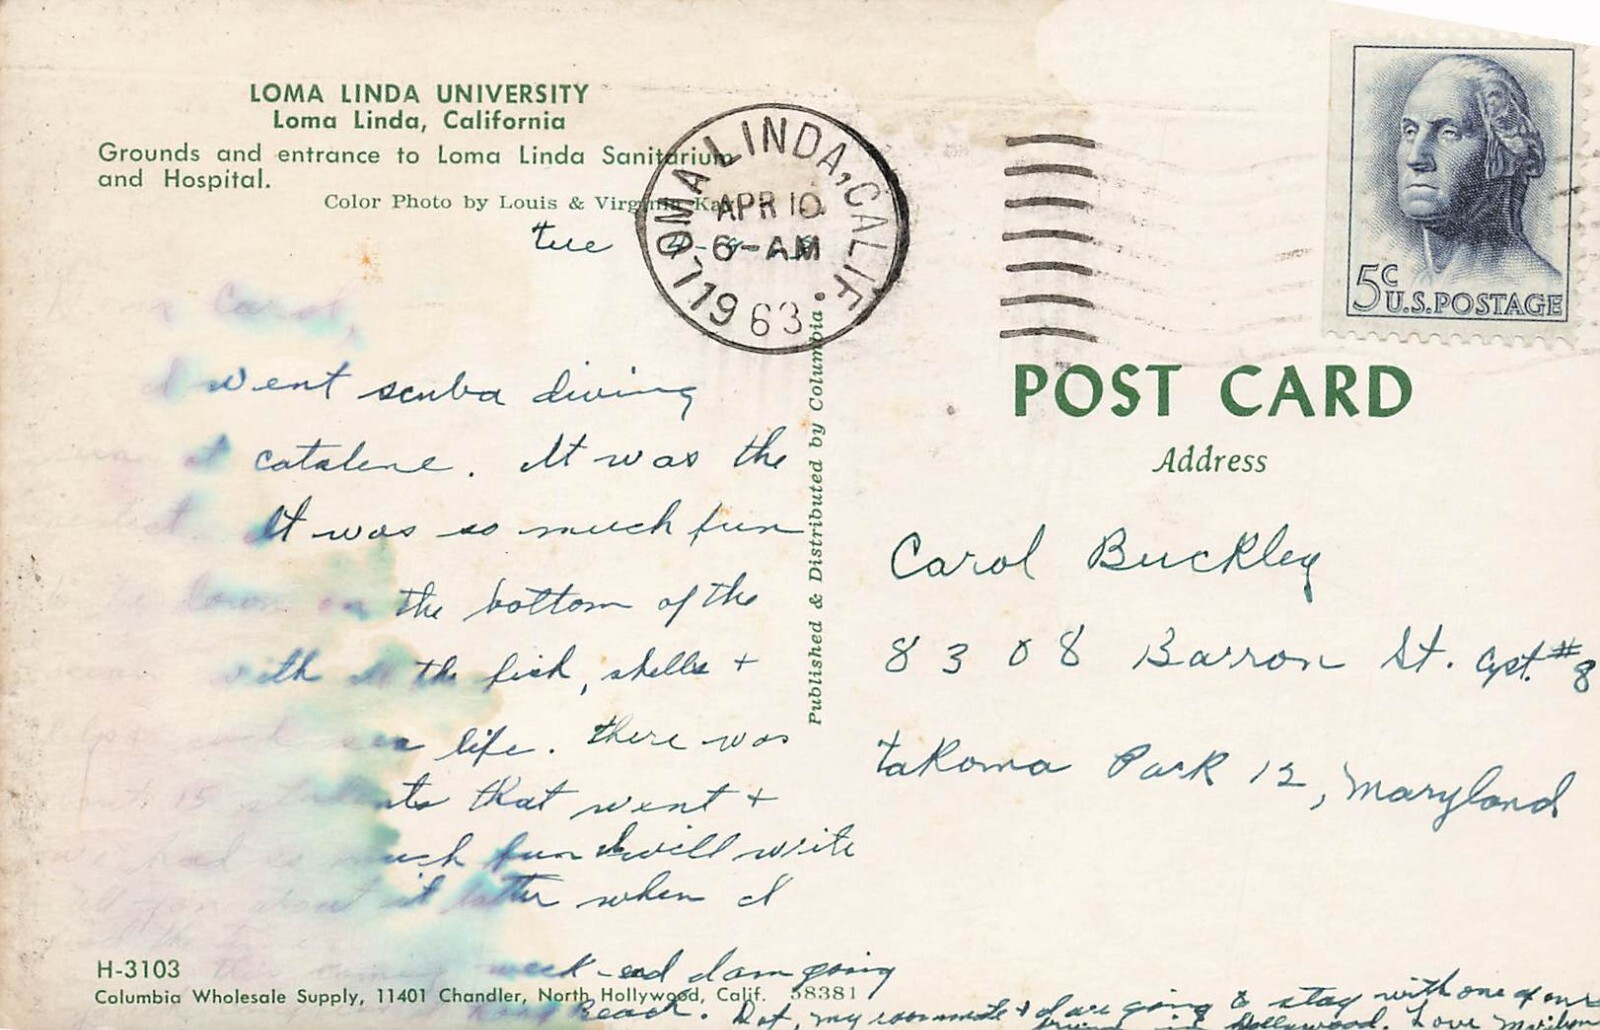 LOMA LINDA UNIVERSITY
Loma Linda, California
Grounds and entrance to Loma Linda Sanitarium
and Hospital.
Color Photo by Louis & Virginia
tue
LOMA LINDA, CALIF.
APR 10
6-AM
1963
5c
U.S. POSTAGE
Carol,
I went scuba diving
at catalene. It was the
It was so much fun
down on the bottom of the
with all the fish, shells +
sea life. there was
15 students that went +
had so much fun I will write
you about it latter when I
this coming week-end I am going
Beach. Dot, my roommate + I are going to stay with one of our
in Hollywood. Love Marilyn
Published & Distributed by Columbia
POST CARD
Address
Carol Buckley
8308 Barron St. apt. #8
takoma Park 12, Maryland
H-3103
Columbia Wholesale Supply, 11401 Chandler, North Hollywood, Calif. 58381